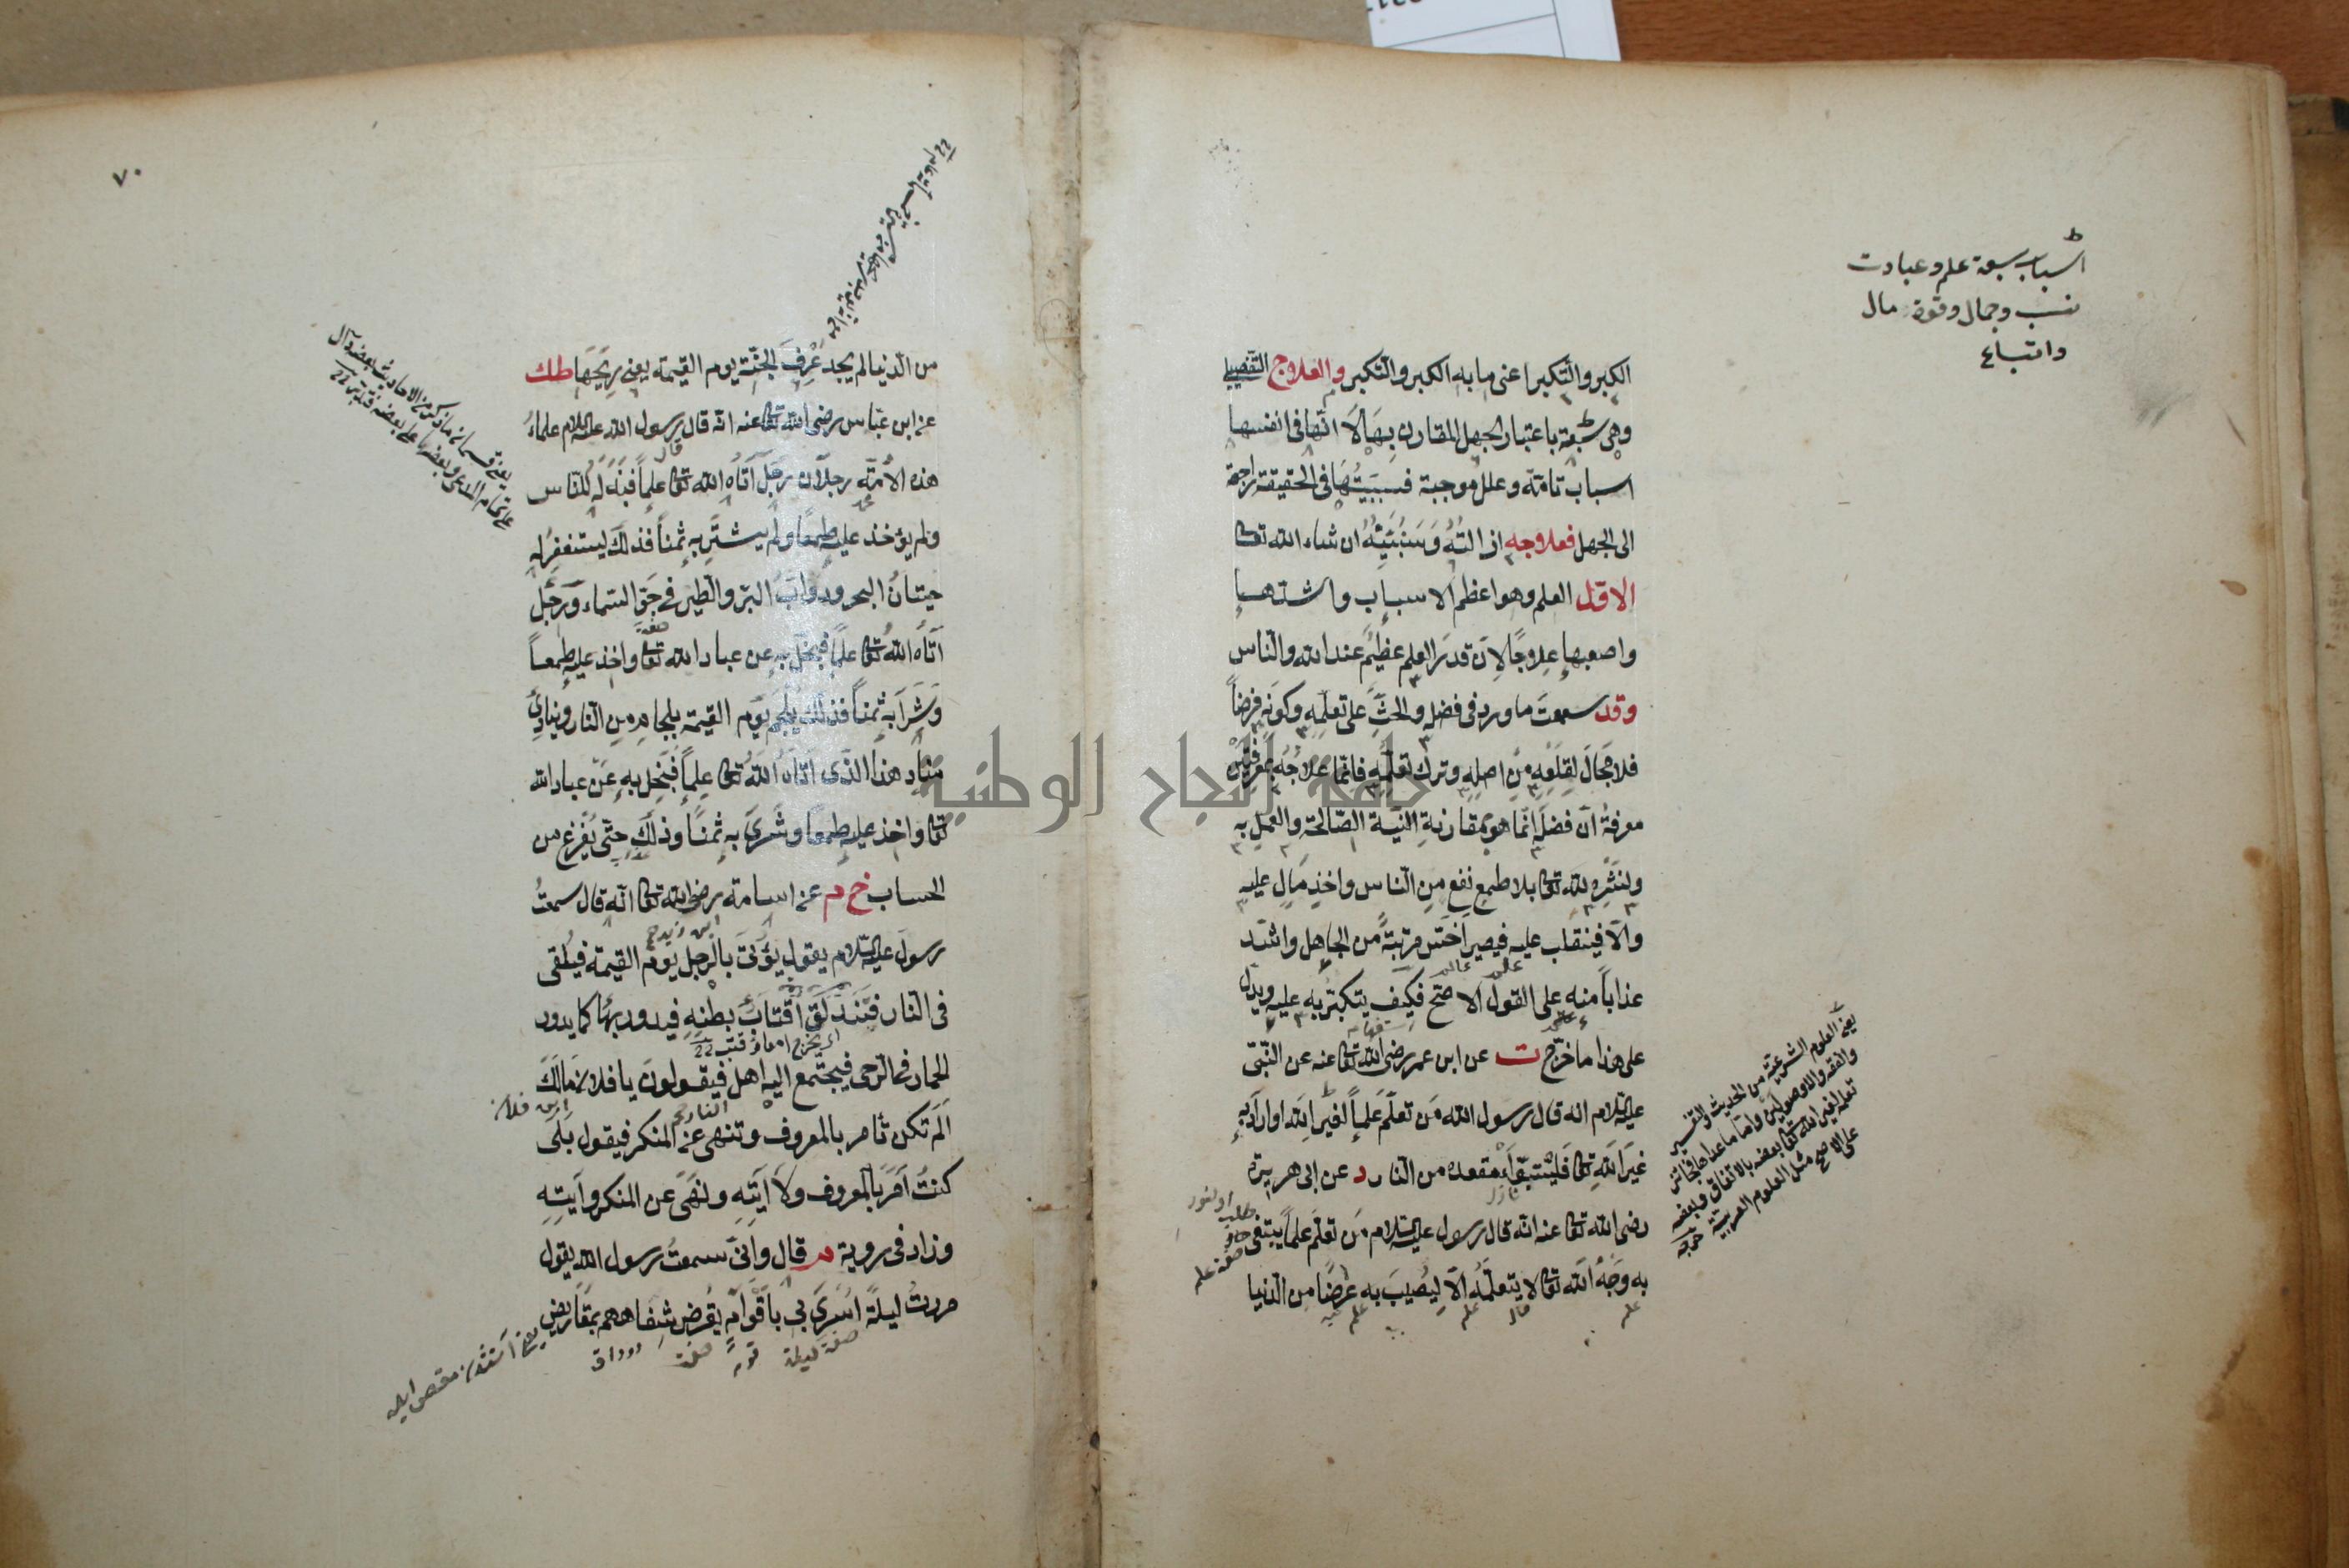 اسباب سبعة علم وعبادت
نسب وجمال وقوة مال
واتباع
الكبر والتكبر اعنى ما به الكبر والتكبر والعلاج التفصيلى
وهى سبعة باعتبار الجهل المقارن بها لا انها فى انفسها
اسباب تامة وعلل موجبة فسببيتها فى الحقيقة راجعة
الى الجهل فعلاجه ازالته وسنبينه ان شاء الله تعالى
الاول العلم وهو اعظم الاسباب واشدها
واصعبها علاجا لان قدر العلم عظيم عند الله والناس
وقد سمعت ما ورد فى فضله والحث على تعلمه وكونه فرضا
فلا مجال لقلعه من اصله وترك تعلمه فانما علاجه بمعرفتين
معرفة ان فضله انما هو بمقارنة النية الصالحة والعمل به
ولنشره لله تعالى بلا طمع نفع من الناس واخذ مال عليه
والا فينقلب عليه فيصير اخس مرتبة من الجاهل واشد
عذابا منه على القول الاصح فكيف يتكبر به عليه ويدل
على هذا ما خرج ت عن ابن عمر رضى الله تعالى عنه عن النبى
عليه السلام انه قال رسول الله من تعلم علما لغير الله او اراد به
غير الله تعالى فليتبوأ مقعده من النار د عن ابى هريرة
رضى الله تعالى عنه انه قال رسول عليه السلام من تعلم علما يبتغى
به وجه الله تعالى لا يتعلمه الا ليصيب به عرضا من الدنيا
يعنى العلوم الشرعية من الحديث والتفسير
والفقه والاصولين واما ما عداها فجائز
تعلمه لغير الله تعالى بعضه بالاتفاق وبعضه
على الاصح مثل العلوم العربية
جامعة النجاح الوطنية
٧٠
من الدنيا لم يجد عرف الجنة يوم القيمة يعنى ريحها طك
عن ابن عباس رضى الله تعالى عنه انه قال رسول الله عليه السلام علماء
هذه الامة رجلان رجل آتاه الله تعالى علما فبذله للناس
ولم يؤخذ عليه طمعا ولم يشتر به ثمنا فذلك يستغفر له
حيتان البحر ودواب البر والطير فى جو السماء ورجل
آتاه الله تعالى علما فبخل به عن عباد الله تعالى واخذ عليه طمعا
وشرا به ثمنا فذلك يلجم يوم القيمة بلجام من النار وينادى
مناد هذا الذى آتاه الله تعالى علما فبخل به عن عباد الله
تعالى واخذ عليه طمعا وشرى به ثمنا وذلك حتى يفرغ من
الحساب خ م عن اسامة رضى الله تعالى انه قال سمعت
رسول عليه السلام يقول يؤتى بالرجل يوم القيمة فيلقى
فى النار فتندلق اقتاب بطنه فيدور بها كما يدور
الحمار فى الرحى فيجتمع اليه اهل فيقولون يا فلان مالك
الم تكن تأمر بالمعروف وتنهى عن المنكر فيقول بلى
كنت آمر بالمعروف ولا آتيه وانهى عن المنكر وآتيه
وزاد فى روية م قال وانى سمعت رسول الله يقول
مررت ليلة اسرى بى باقوام يقرض شفاههم بمقاريض